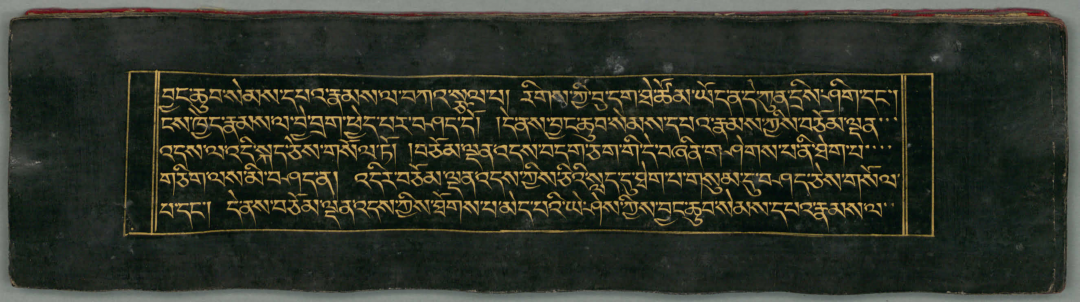 བྱང་ཆུབ་སེམས་དཔའ་རྣམས་ལ་བཀའ་སྩལ་པ། རིགས་ཀྱི་བུ་དག་ཐེ་ཚོམ་ཡོད་ན་དེ་ཀུན་དྲིས་ཤིག་དང་།
ངས་ཁྱེད་རྣམས་ལ་བྱེ་བྲག་ཕྱེད་པར་བཤད་དོ། །དེ་ནས་བྱང་ཆུབ་སེམས་དཔའ་རྣམས་ཀྱིས་བཅོམ་ལྡན་
འདས་ལ་འདི་སྐད་ཅེས་གསོལ་ཏོ། །བཅོམ་ལྡན་འདས་བདག་ཅག་གི་དེ་བཞིན་གཤེགས་པ་ནི་ཐེག་པ་
གཅིག་ལས་མི་བཤད་ན། འདིར་བཅོམ་ལྡན་འདས་ཀྱིས་ཅིའི་སླད་དུ་ཐེག་པ་གསུམ་དུ་བཤད་ཅེས་གསོལ་
པ་དང་། དེ་ནས་བཅོམ་ལྡན་འདས་ཀྱིས་ཐོགས་པ་མེད་པའི་ཡེ་ཤེས་ཀྱིས་བྱང་ཆུབ་སེམས་དཔའ་རྣམས་ལ་